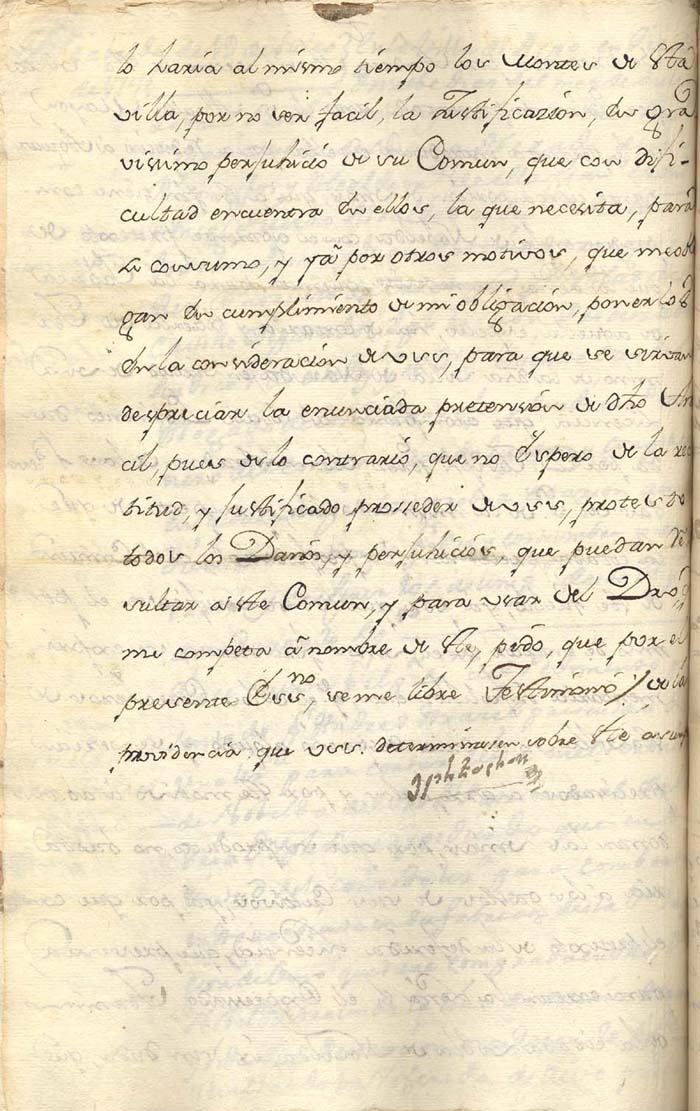 lo haria al mismo tiempo los Montes de Sta
villa, por no ser facil, la Justificazion, en gra
vissimo perjuhicio de su Comun, que con difi-
cultad encuentra en ellos, la que necesita, para
consumo, y ya por otros motivos, que me obli
gan en cumplimiento de mi obligacion, ponerlo
en la consideracion de vss, para que se sirvan
despreciar la enunciada pretension de dho
cil, pues de lo contrario, que no Espero de la rec
titud, y Justificado prosseder de vss, protesto
todos los Daños, y perjuhicios, que puedan re
sultar a ste Comun, y para usar del Dro
me competa a nombre de ste, pido, que por el
presente Essno, se me libre Testimonio / de la
providencia que vss. determinasen sobre ste asump